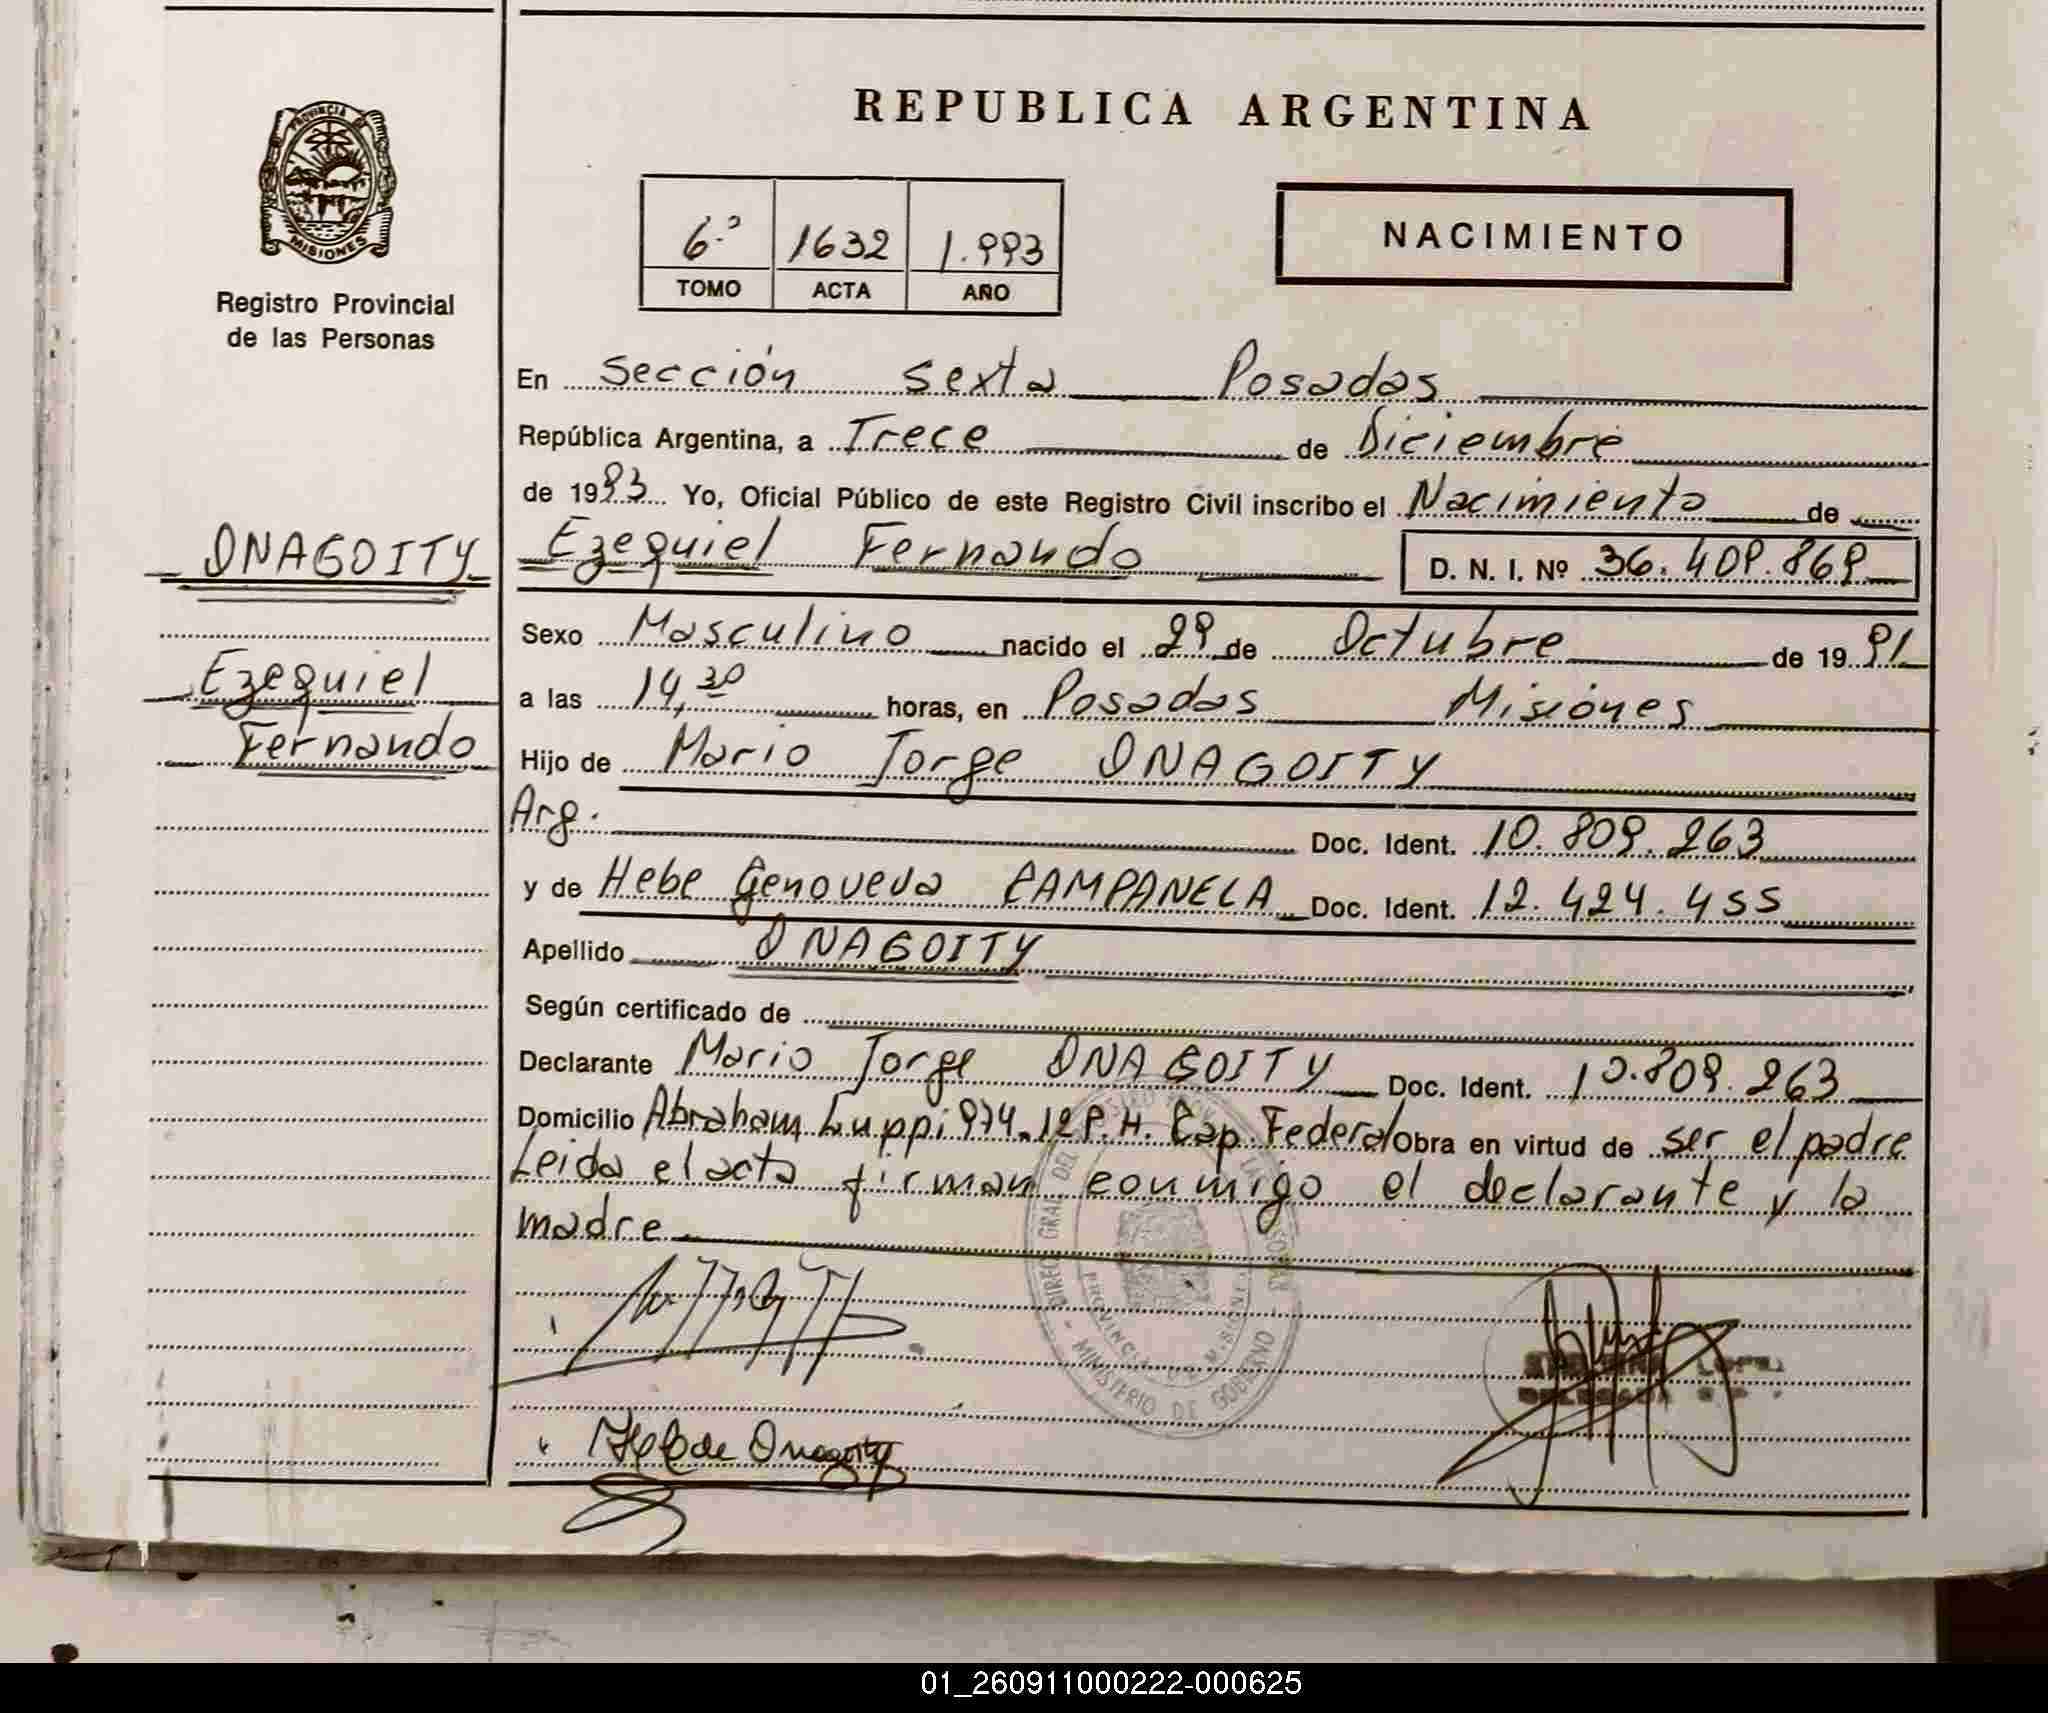 REPUBLICA ARGENTINA
PROVINCIA DE
MISIONES
Registro Provincial
de las Personas
6º 1632 1.993
TOMO ACTA AÑO
NACIMIENTO
En Sección Sexta Posadas
República Argentina, a Trece de Diciembre
de 1993 Yo, Oficial Público de este Registro Civil inscribo el Nacimiento de
ONAGOITY
Ezequiel Fernando D. N. I. Nº 36.409.869
Sexo Masculino nacido el 29 de Octubre de 1991
Ezequiel
a las 14,30 horas, en Posadas Misiones
Fernando
Hijo de Mario Jorge ONAGOITY
Arg. Doc. Ident. 10.809.263
y de Hebe Genoveva CAMPANELA Doc. Ident. 12.424.455
Apellido ONAGOITY
Según certificado de
Declarante Mario Jorge ONAGOITY Doc. Ident. 10.809.263
Domicilio Abraham Luppi 974. 12 P. H. Cap. Federal Obra en virtud de ser el padre
Leida el acta firman conmigo el declarante y la
madre
MINISTERIO DE GOBIERNO
de Onagoity
01_260911000222-000625